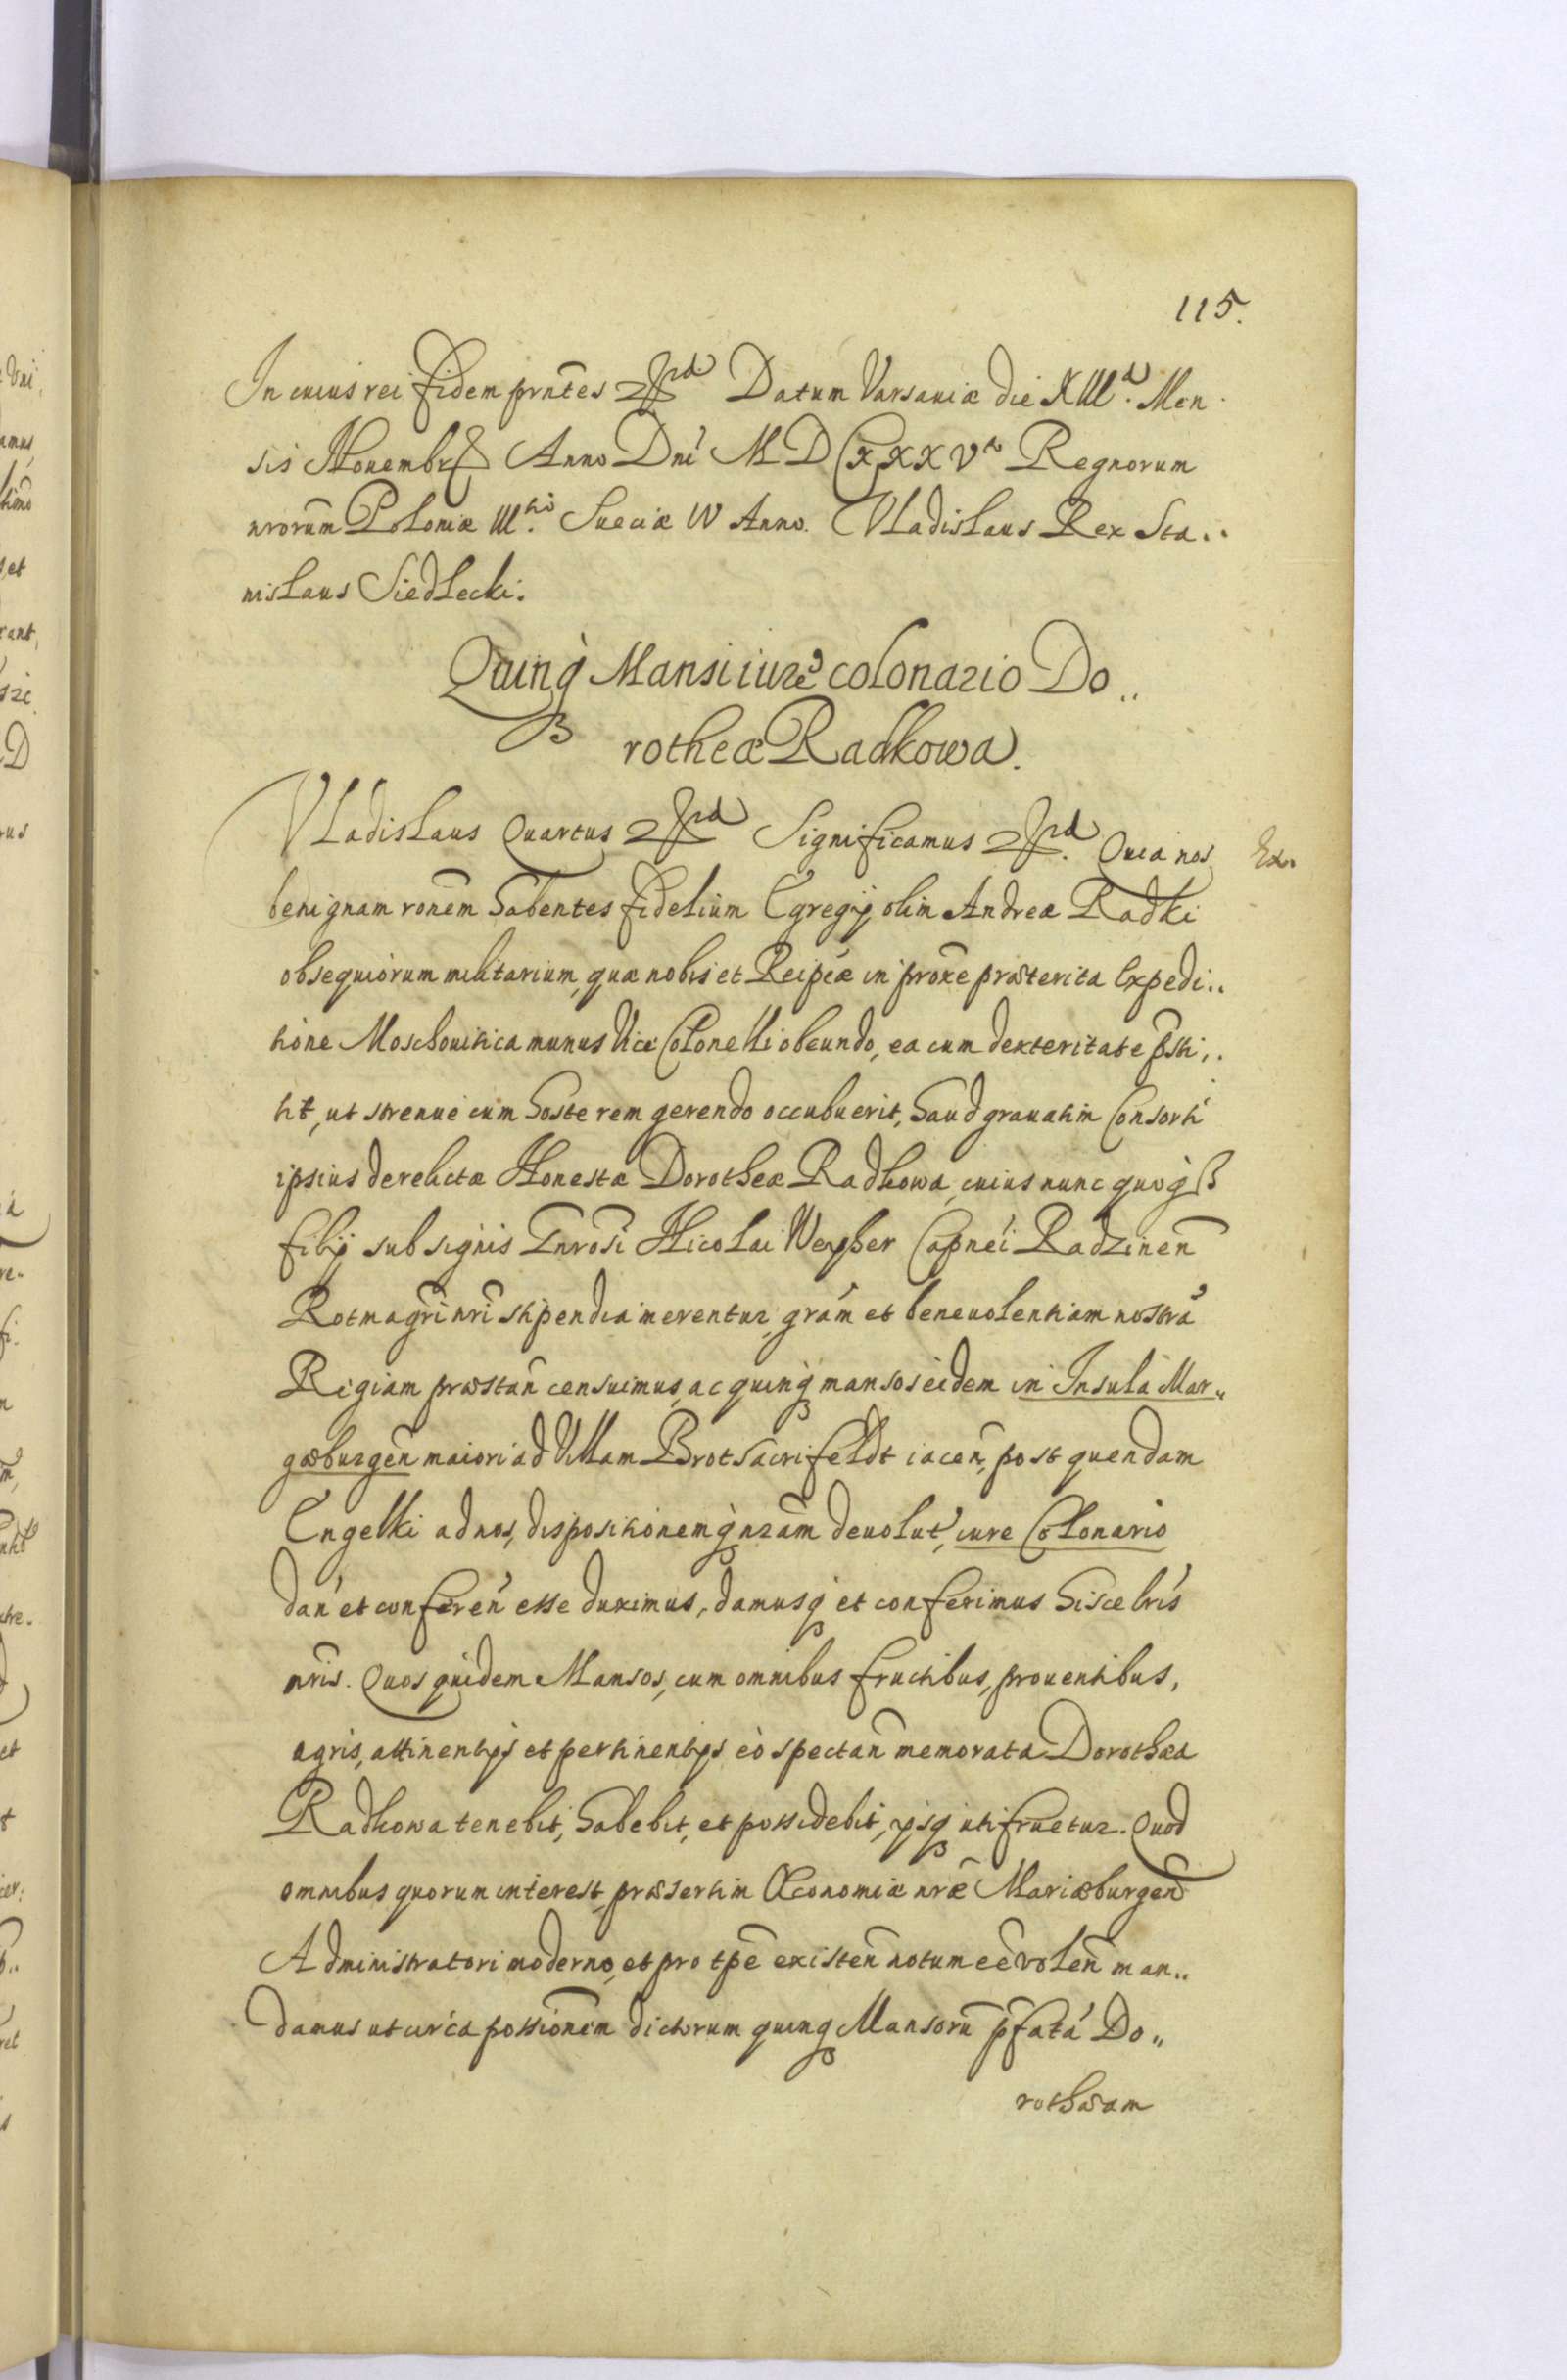 115.
In cuius rei fidem prntes Datum Varsaviæ die XIII. Men
sis Novembr Anno Dni MDCXXXVto Regnorum
nrorum Poloniæ IIItio Sueciæ IV Anno. Vladislaus Rex Sta..
nislaus Siedlecki.
Quinq Mansi iure colonario Do..
rotheæ Radkowa.
Vladislaus Quartus Significamus Quia nos Ex.
benignam ronem habentes fidelium Egregij olim Andreæ Radki
obsequiorum militarium, quæ nobis et Reipcæ in proxe præterita Expedi..
tione Moschovitica munus Vice Colonelli obeundo, ea cum dexteritate psti..
tit, ut strenue cum hoste rem gerendo occubuerit, haud gravatim Consorti
ipsius derelictæ Honestæ Dorotheæ Radkowa, cuius nunc quoq
filij sub signis Gnrosi Nicolai Weyher Capnei Radzinen
Rotmagri nri stipendia merentur, gram et benevolentiam nostra
Regiam præstan censuimus, ac quinq mansos eidem in Insula Mar..
gæburgen maiori ad Villam Brotsacrifeldt iacen, post quendam
Engelki ad nos, dispositionemq nram devolut, iure Colonario
dan et conferen esse duximus, damusq et conferimus hisce lris
nris. Quos quidem Mansos, cum omnibus fructibus, proventibus,
agris, attinentijs et pertinentijs eo spectan memorata Dorothea
Radkowa tenebit, habebit, et possidebit, ijsq utifruetur. Quod
omnibus quorum interest, præsertim Œconomiæ nræ Mariæburgen
Administratori moderno, et pro tpe existen notum ee volen man..
damus ut circa possionem dictorum quinq Mansoru pfata Do..
rothæam